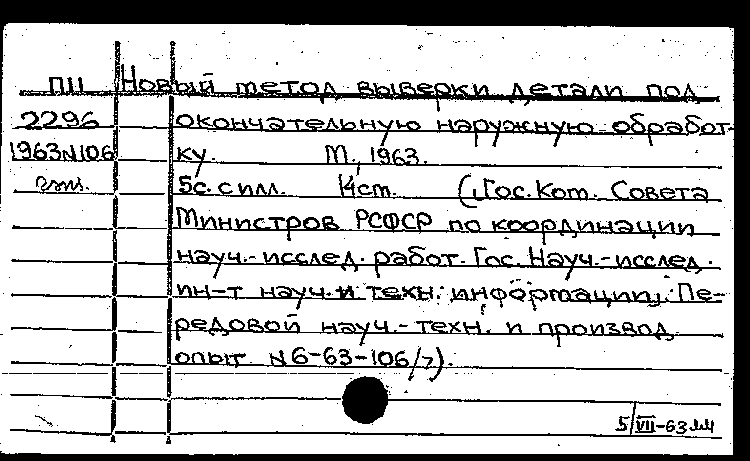 ПII Новый метод выверки детали под
2296 окончательную наружную обработ-
1963N106 ку. М., 1963.
5с. с илл. 14 cm. (Гос. Ком. Совета
Министров РСФСР по координации
науч.-исслед. работ. Гос. Науч.-исслед.
ин-т науч. и техн. информации. Пе-
редовой науч.-техн. и производ.
опыт. N 6-63-106/7).
5/VII-63